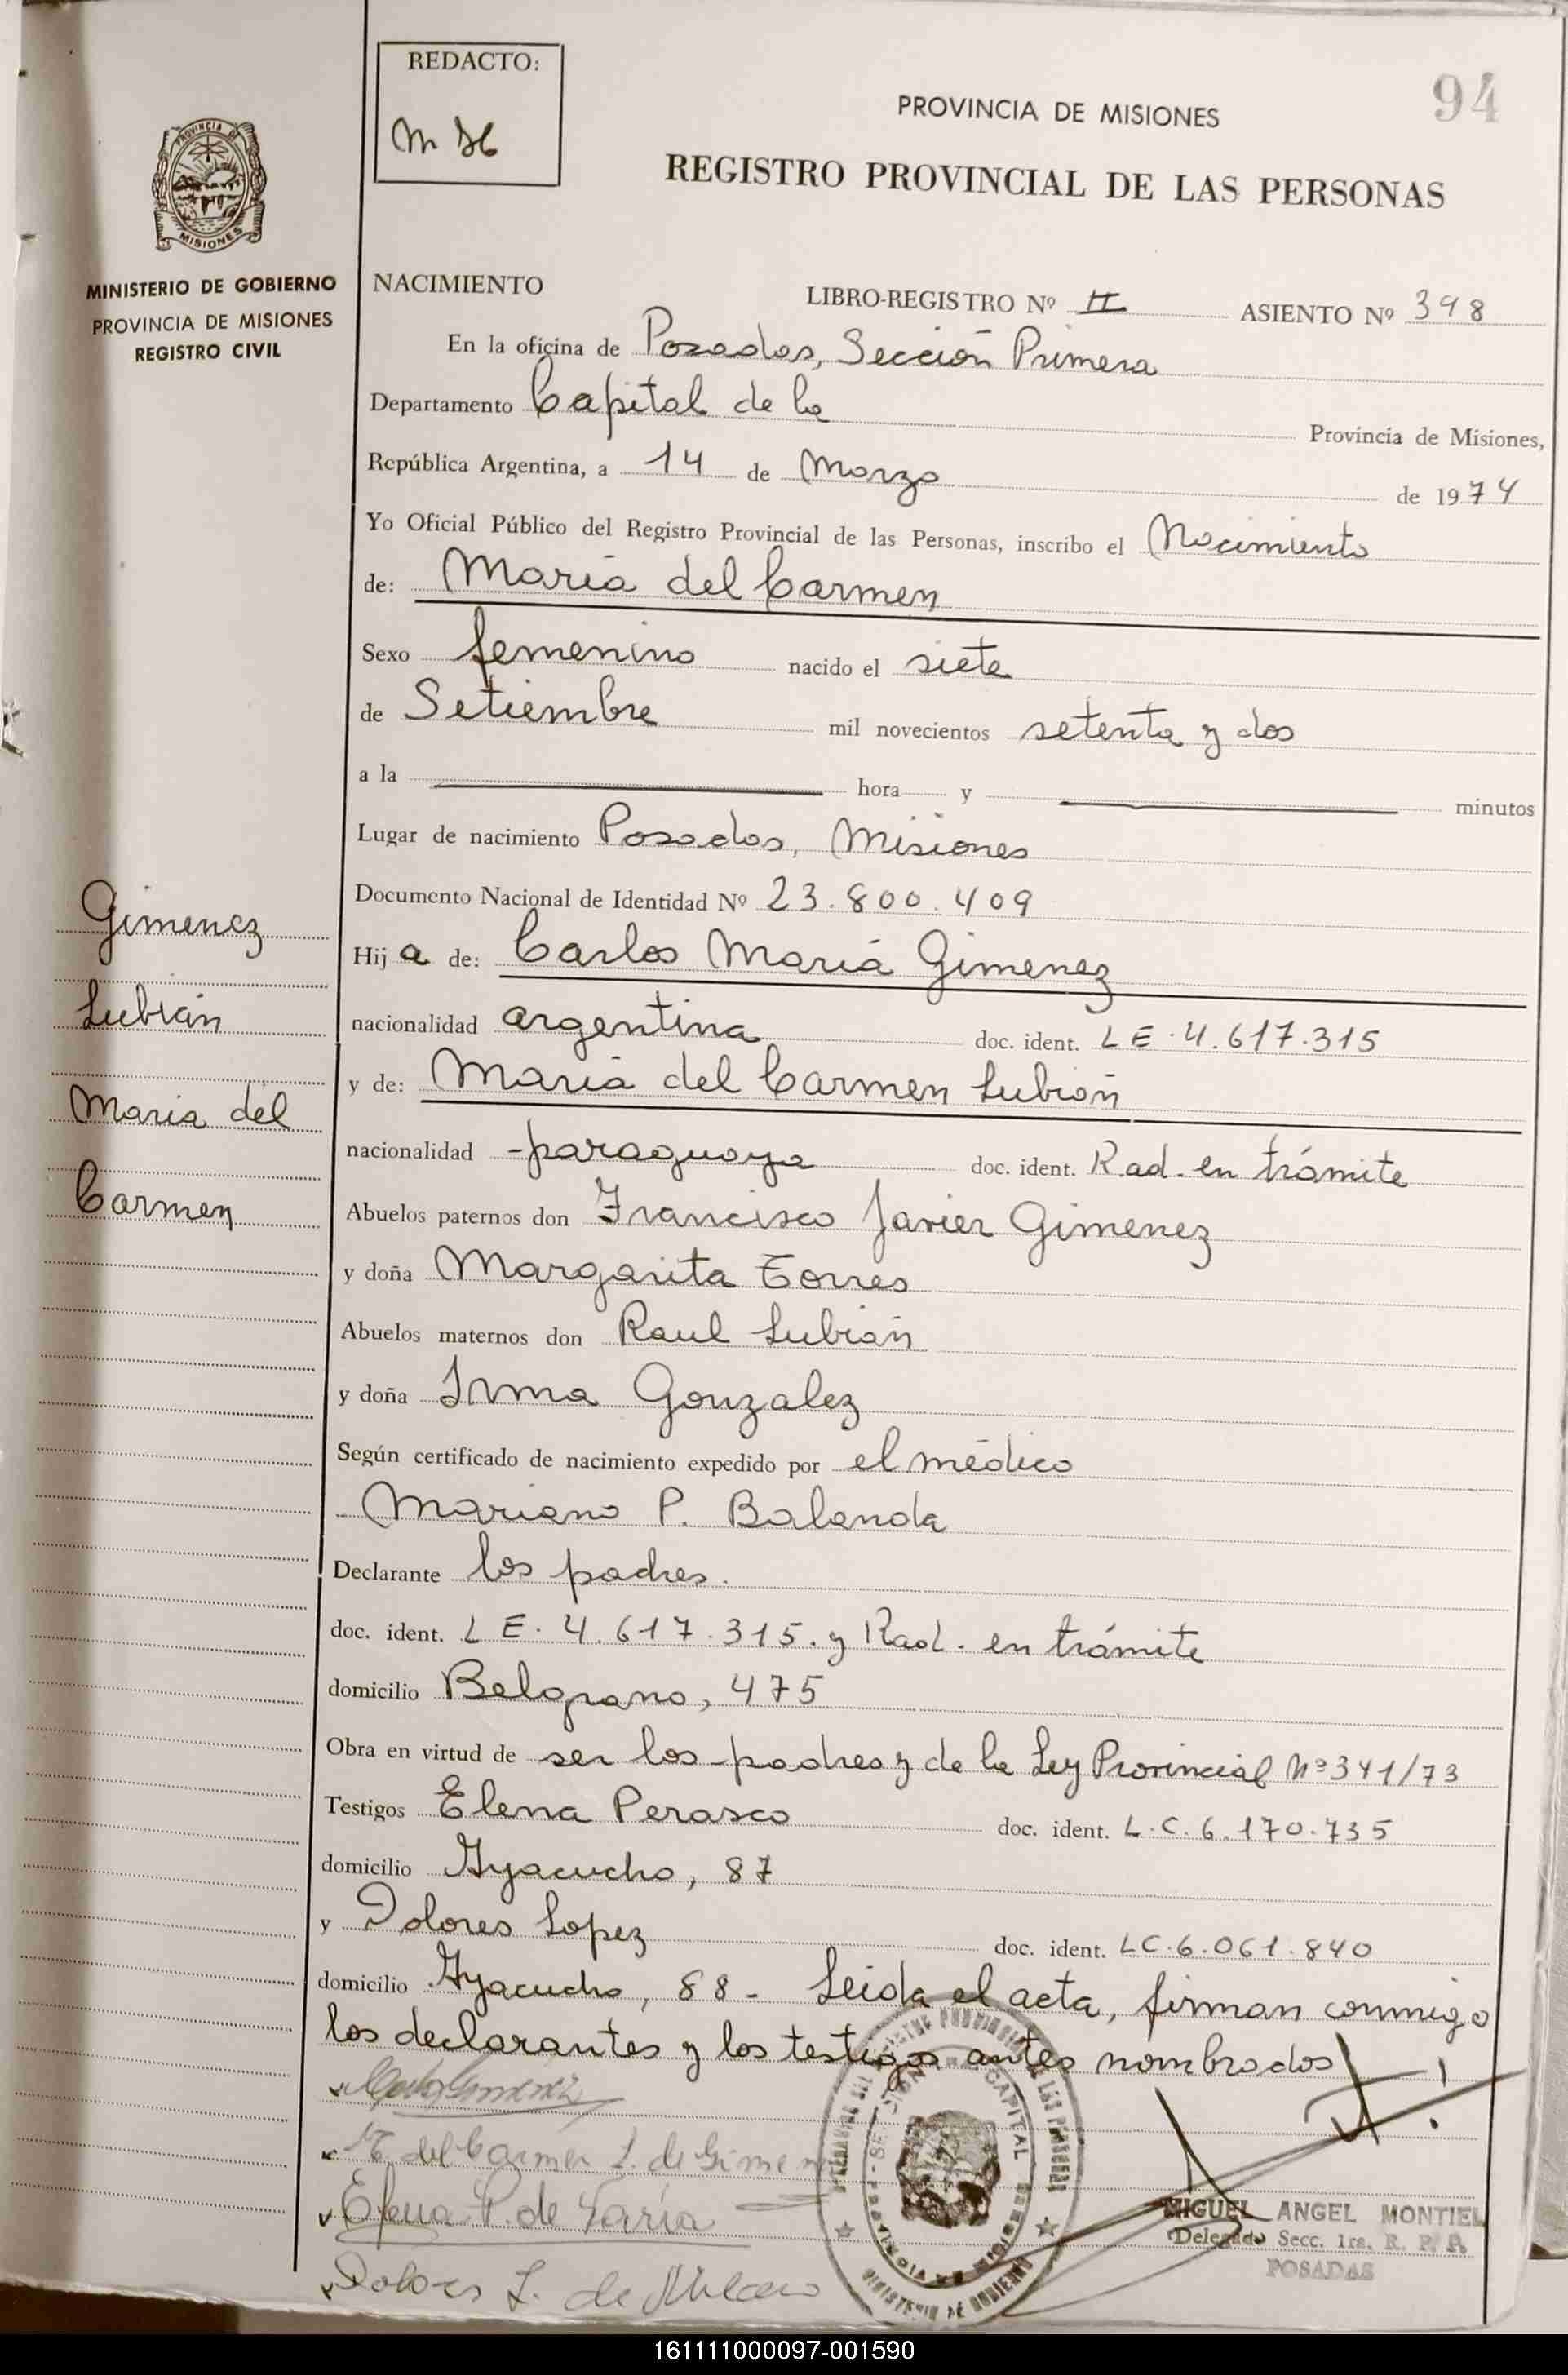 REDACTO:
94
PROVINCIA DE MISIONES
REGISTRO PROVINCIAL DE LAS PERSONAS
PROVINCIA DE
MISIONES
MINISTERIO DE GOBIERNO
PROVINCIA DE MISIONES
REGISTRO CIVIL
NACIMIENTO
LIBRO-REGISTRO Nº II ASIENTO Nº 398
En la oficina de Posadas, Sección Primera
Departamento Capital de la Provincia de Misiones,
República Argentina, a 14 de Marzo de 1974
Yo Oficial Público del Registro Provincial de las Personas, inscribo el Nacimiento
de: María del Carmen
Sexo femenino nacido el siete
de Setiembre mil novecientos setenta y dos
a la hora y minutos
Lugar de nacimiento Posadas, Misiones
Documento Nacional de Identidad Nº 23.800.409
Hija de: Carlos María Gimenez
nacionalidad argentina doc. ident. LE. 4.617.315
y de: María del Carmen Lubián
nacionalidad paraguaya doc. ident. Rad. en trámite
Abuelos paternos don Francisco Javier Gimenez
y doña Margarita Torres
Abuelos maternos don Raul Lubián
y doña Irma Gonzalez
Según certificado de nacimiento expedido por el médico
Mariano P. Balanda
Declarante los padres.
doc. ident. LE. 4.617.315. y Rad. en trámite
domicilio Belgrano, 475
Obra en virtud de ser los padres y de la Ley Provincial Nº 341/73
Testigos Elena Perasco doc. ident. L.C. 6.170.735
domicilio Ayacucho, 87
y Dolores Lopez doc. ident. LC. 6.061.840
domicilio Ayacucho, 88 - Leída el acta, firman conmigo
los declarantes y los testigos antes nombrados
Gimenez
Lubián
María del
Carmen
M. del Carmen L. de Gimenez
Elena P. de Faria
Dolores L. de
CAPITAL
MINISTERIO DE GOBIERNO
MIGUEL ANGEL MONTIEL
Delegado Secc. 1ra. R. P. P.
POSADAS
161111000097-001590